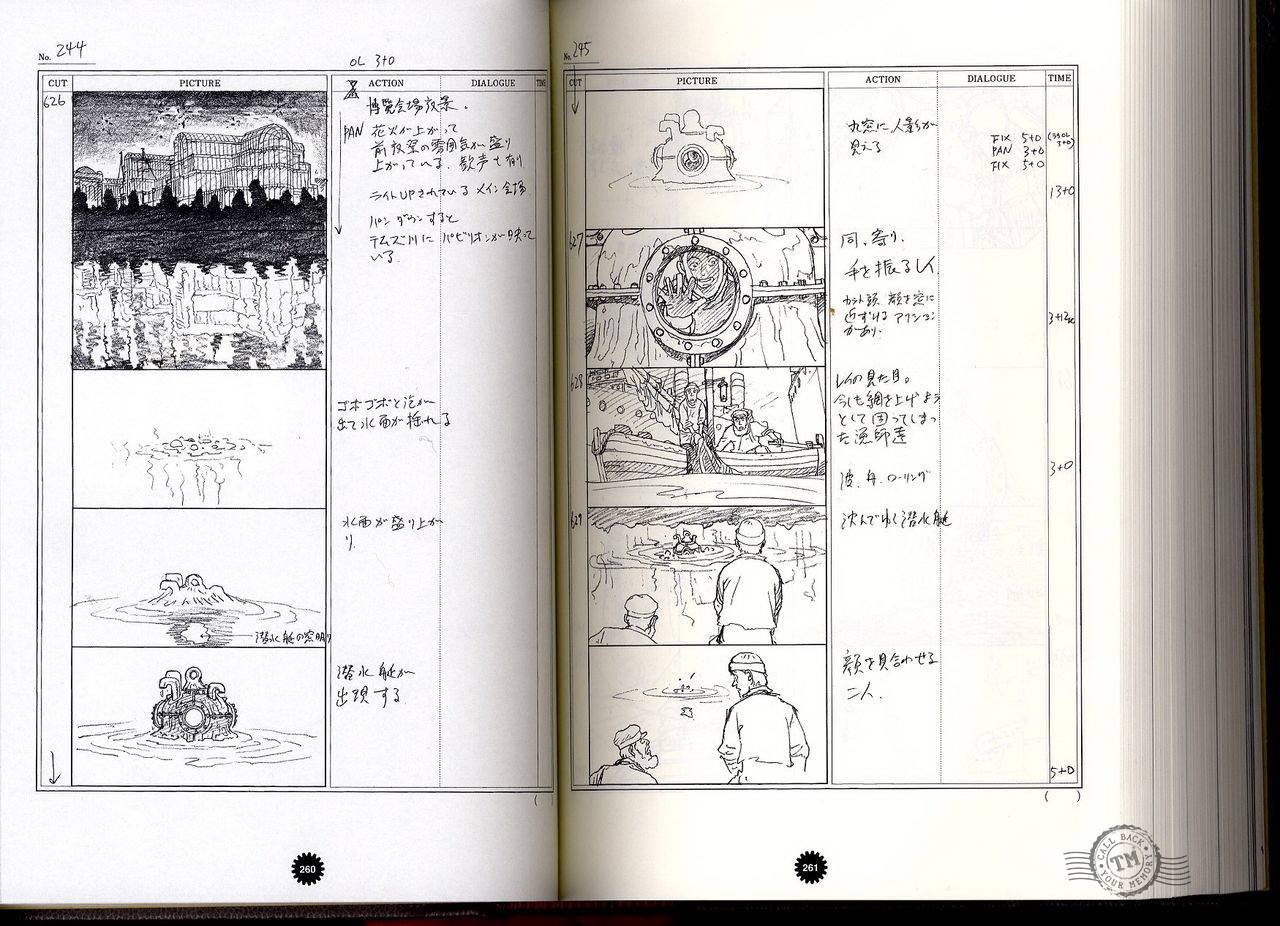 No. 244
OL 3+0
CUT PICTURE ACTION DIALOGUE TIME
626
博覧会場夜景。
PAN 花火が上がって
前夜祭の雰囲気が盛り
上がっている。歓声も有り
ライトUPされている メイン会場
パン ダウンすると
テムズ川に パビリオンが映って
いる。
ゴボゴボと泡が
出て水面が揺れる
水面が盛り上が
り
潜水艇の窓明り
潜水艇が
出現する
260
No. 245
CUT PICTURE ACTION DIALOGUE TIME
丸窓に人影が
見える
FIX 5+0
PAN 3+0
FIX 5+0
13+0
627
同、寄り。
手を振るレイ
カット頭 顔を窓に
近ずける アクション
があり。
3+12k
628
レイの見た目。
今しも網を上げよう
として困ってしまっ
た漁師達
波、舟、ローリング
3+0
629
沈んでゆく潜水艇
顔を見合わせる
二人。
5+0
261
CALL BACK
TM
YOUR MEMORY